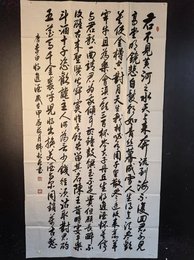 君不見黄河之水天上来奔流到海不復回君不見
高堂明鏡悲白髮朝如青丝暮成雪人生得意须尽歡
莫使金樽空對月天生我材必有用千金散尽還復来烹羊
宰牛且為樂會须一飲三百杯岑夫子丹丘生将進酒杯莫停
与君歌一曲请君為我傾耳聽鐘鼓饌玉不足貴但願長醉不
復醒古来聖賢皆寂寞惟有飲者留其名陳王昔時宴平樂
斗酒十千恣歡謔主人何為言少錢徑须沽取對君酌
五花馬千金裘呼兒将出换美酒与尔同銷萬古愁
唐李白将進酒 甲辰年 書